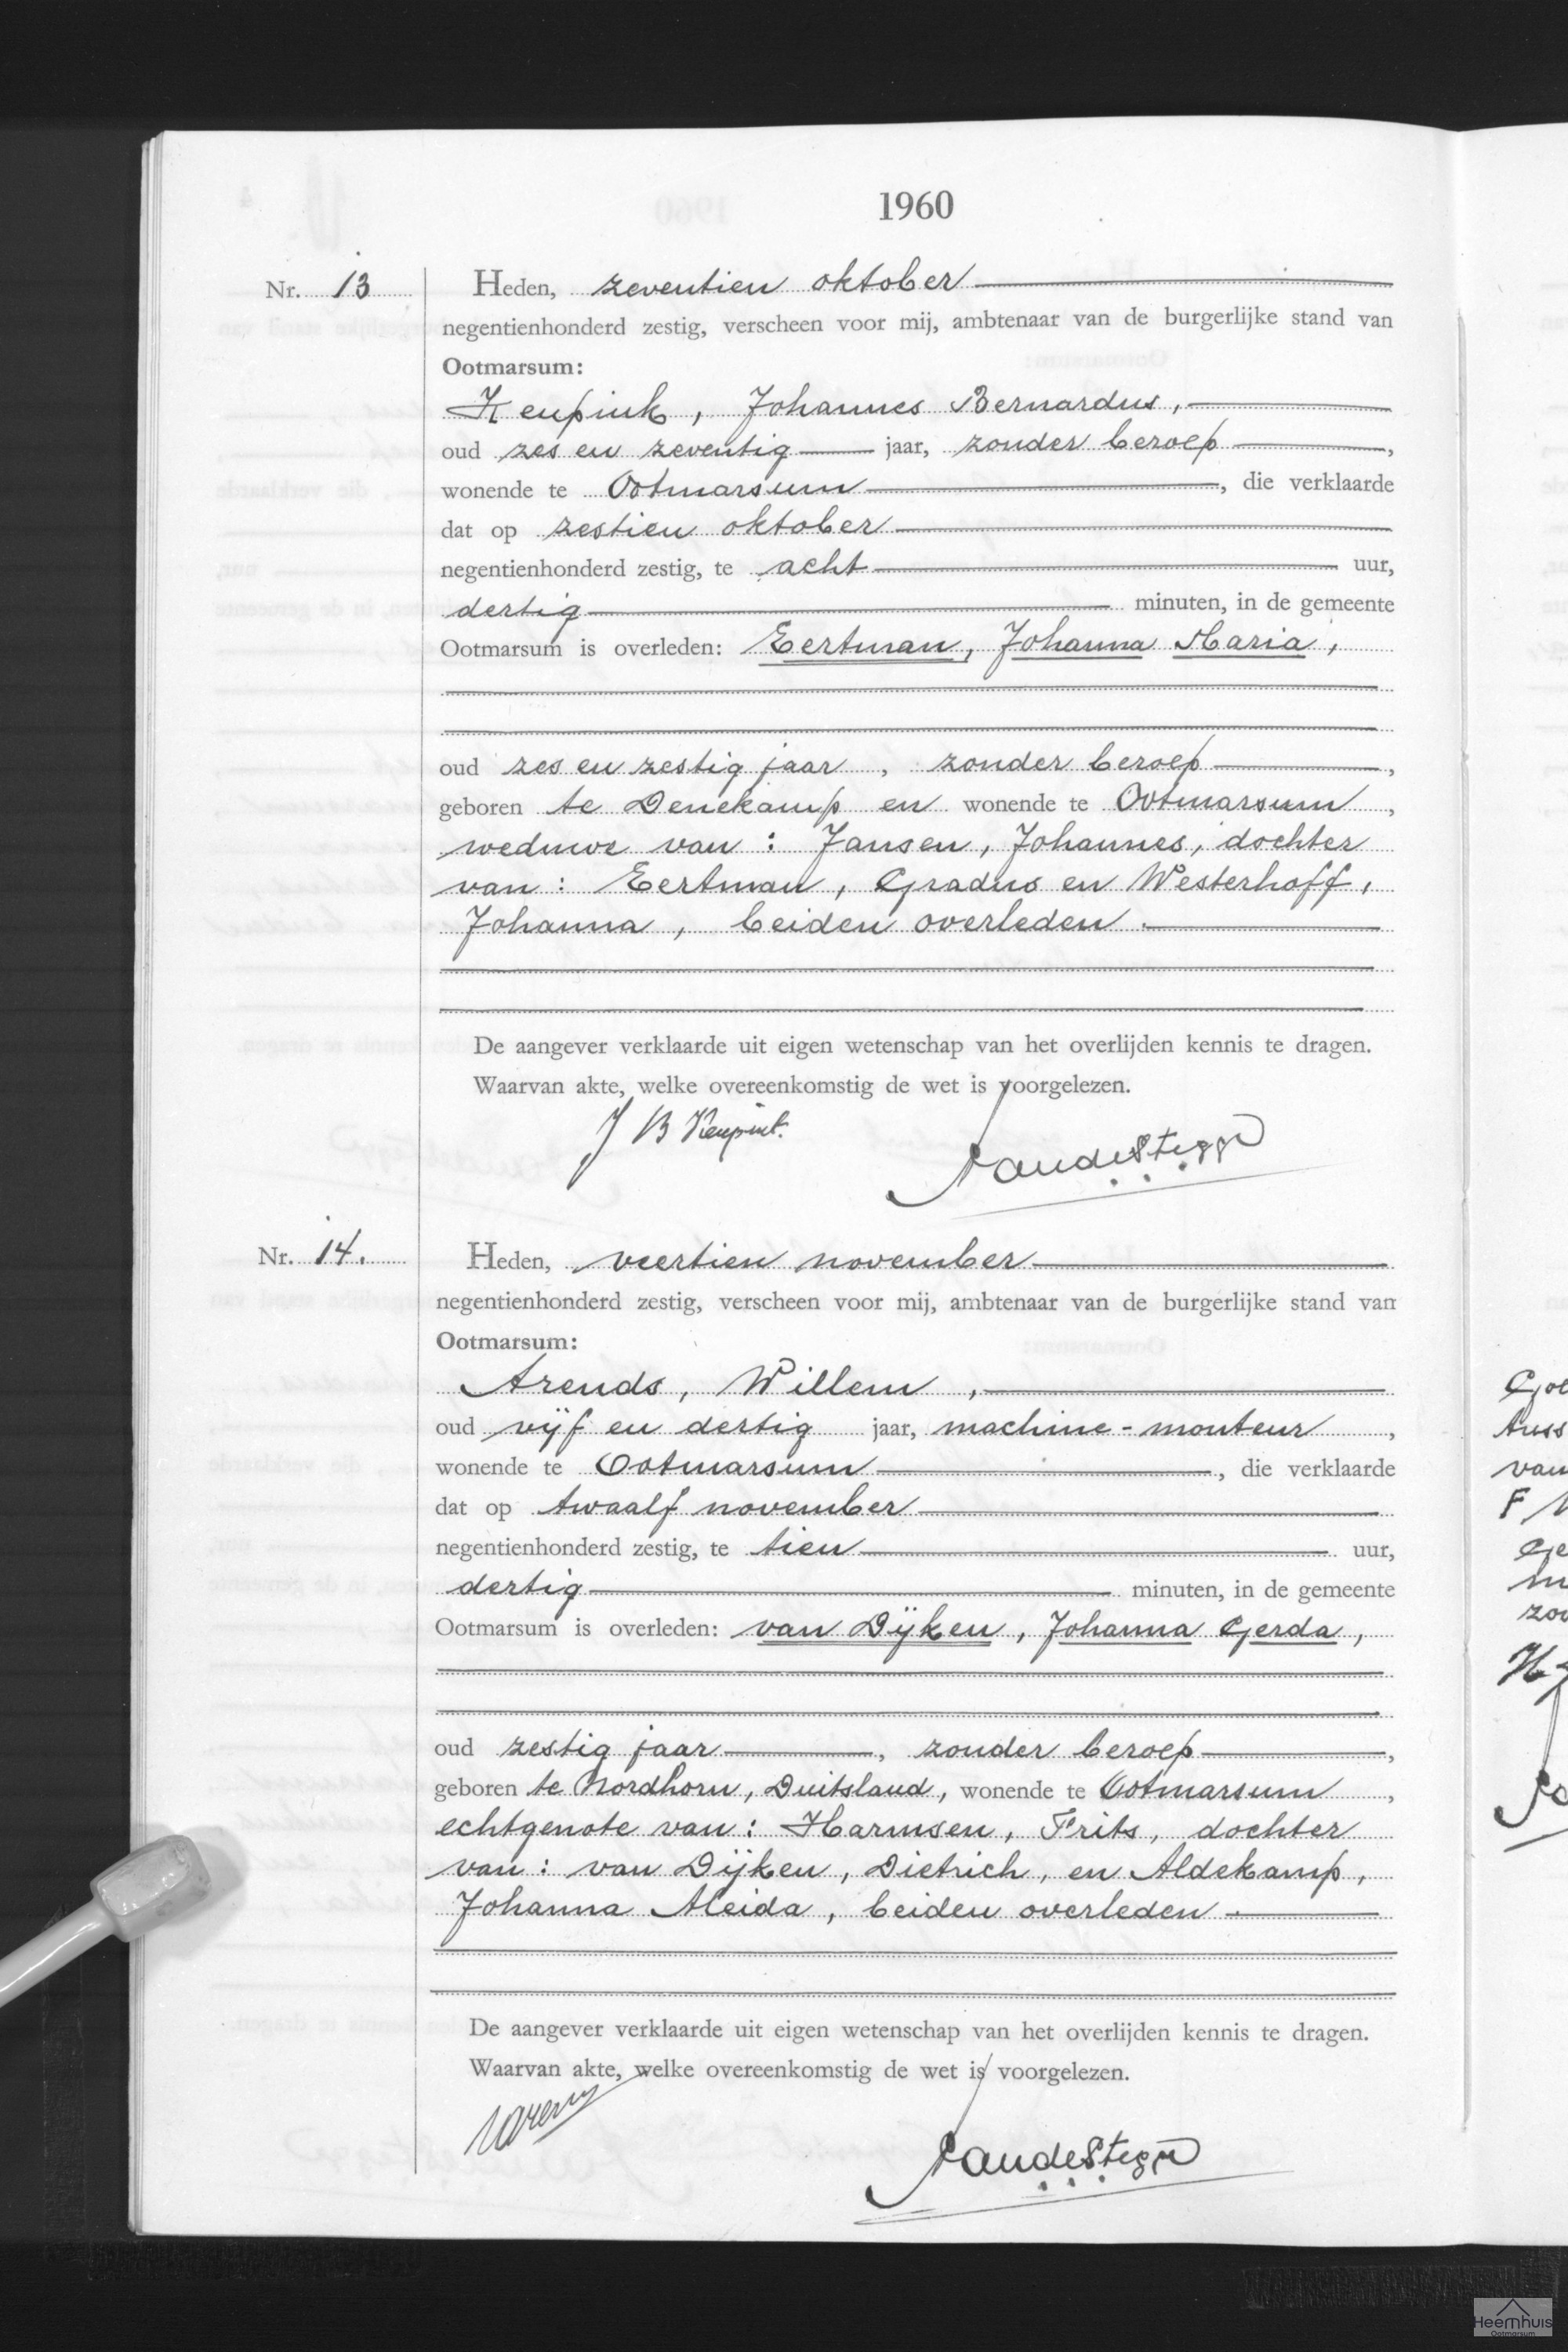 1960
Nr. 13
Heden, zeventien oktober
negentienhonderd zestig, verscheen voor mij, ambtenaar van de burgerlijke stand van
Ootmarsum:
Keupink, Johannes Bernardus,
oud zes en zeventig jaar, zonder beroep,
wonende te Ootmarsum, die verklaarde
dat op zestien oktober
negentienhonderd zestig, te acht uur,
dertig minuten, in de gemeente
Ootmarsum is overleden: Eertman, Johanna Maria,
oud zes en zestig jaar, zonder beroep,
geboren te Denekamp en wonende te Ootmarsum,
weduwe van: Jansen, Johannes, dochter
van: Eertman, Gradus en Westerhoff,
Johanna, beiden overleden.
De aangever verklaarde uit eigen wetenschap van het overlijden kennis te dragen.
Waarvan akte, welke overeenkomstig de wet is voorgelezen.
J B Keupink.
Nr. 14.
Heden, veertien november
negentienhonderd zestig, verscheen voor mij, ambtenaar van de burgerlijke stand van
Ootmarsum:
Arends, Willem,
oud vijf en dertig jaar, machine-monteur,
wonende te Ootmarsum, die verklaarde
dat op twaalf november
negentienhonderd zestig, te tien uur,
dertig minuten, in de gemeente
Ootmarsum is overleden: van Dijken, Johanna Gerda,
oud zestig jaar, zonder beroep,
geboren te Nordhorn, Duitsland, wonende te Ootmarsum,
echtgenote van: Harmsen, Frits, dochter
van: van Dijken, Dietrich, en Aldekamp,
Johanna Aleida, beiden overleden.
De aangever verklaarde uit eigen wetenschap van het overlijden kennis te dragen.
Waarvan akte, welke overeenkomstig de wet is voorgelezen.
Heemhuis
Ootmarsum